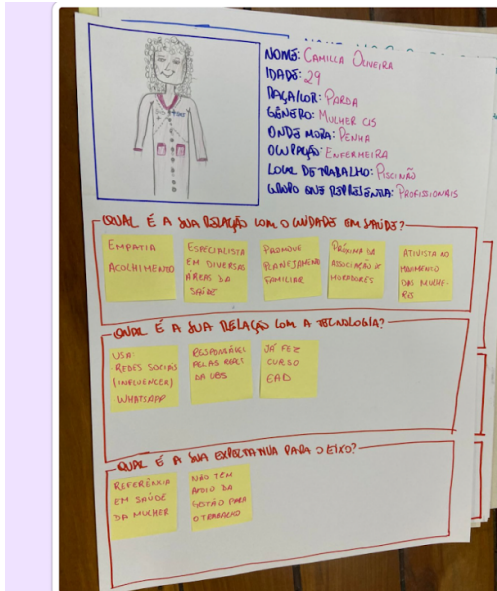 NOME: CAMILLA OLIVEIRA
IDADE: 29
RAÇA/COR: PARDA
GÊNERO: MULHER CIS
ONDE MORA: PENHA
OCUPAÇÃO: ENFERMEIRA
LOCAL DE TRABALHO: PISCINÃO
GRUPO QUE REPRESENTA: PROFISSIONAIS
QUAL É A SUA RELAÇÃO COM O CUIDADO EM SAÚDE?
EMPATIA
ACOLHIMENTO
ESPECIALISTA
EM DIVERSAS
ÁREAS DA
SAÚDE
PROMOVE
PLANEJAMENO
FAMILIAR
PRÓXIMA DA
ASSOCIAÇÃO DE
MORADORES
ATIVISTA NO
MOVIMENTO
DAS MULHE-
RES
QUAL É A SUA RELAÇÃO COM A TECNOLOGIA?
USA:
REDES SOCIAIS
(INFLUENCER)
WHATSAPP
RESPONSÁVEL
PELAS REDES
DA UBS
JÁ FEZ
CURSO
EAD
QUAL É A SUA EXPECTATIVA PARA O EIXO?
REFERÊNCIA
EM SAÚDE
DA MULHER
NÃO TEM
APOIO DA
GESTÃO PARA
O TRABALHO